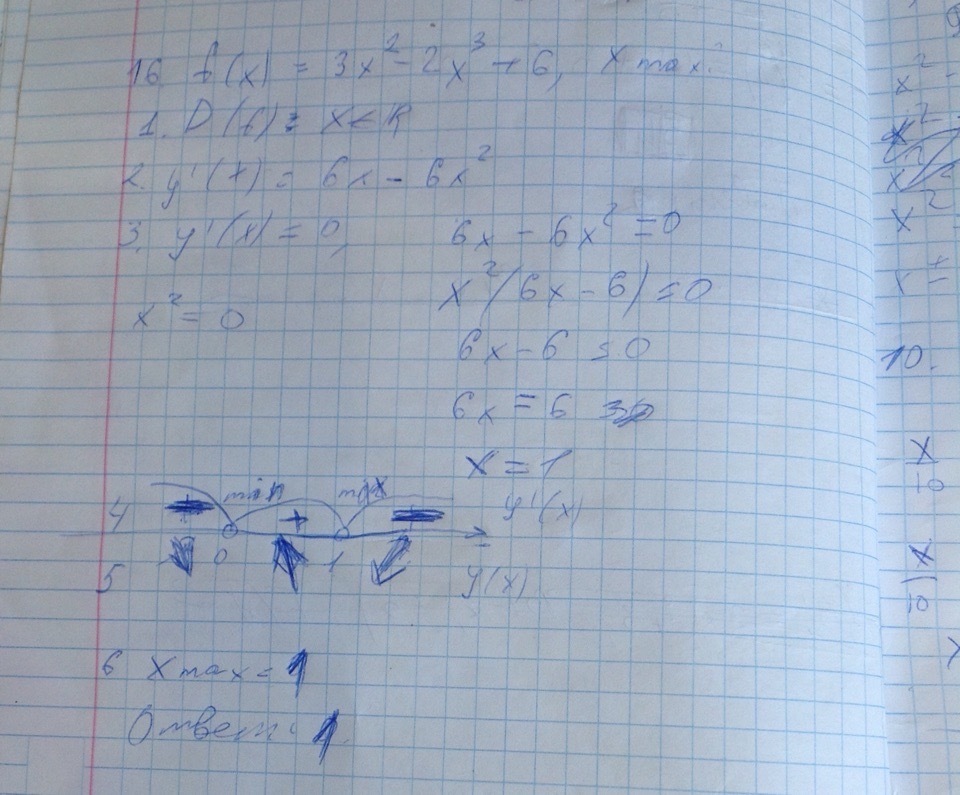 16 f(x) = 3x² - 2x³ + 6, x max?
1. D(f) = x ∈ R
2. y'(x) = 6x - 6x²
3. y'(x) = 0, 6x - 6x² = 0
x² = 0 x²(6x - 6) = 0
6x - 6 = 0
6x = 6
x = 1
4 - min + max - y'(x)
5 0 1 y(x)
6 x max = 1
Ответ: 1
x² -
x²
x²
x
x²
x ±
10.
x
10
x
10